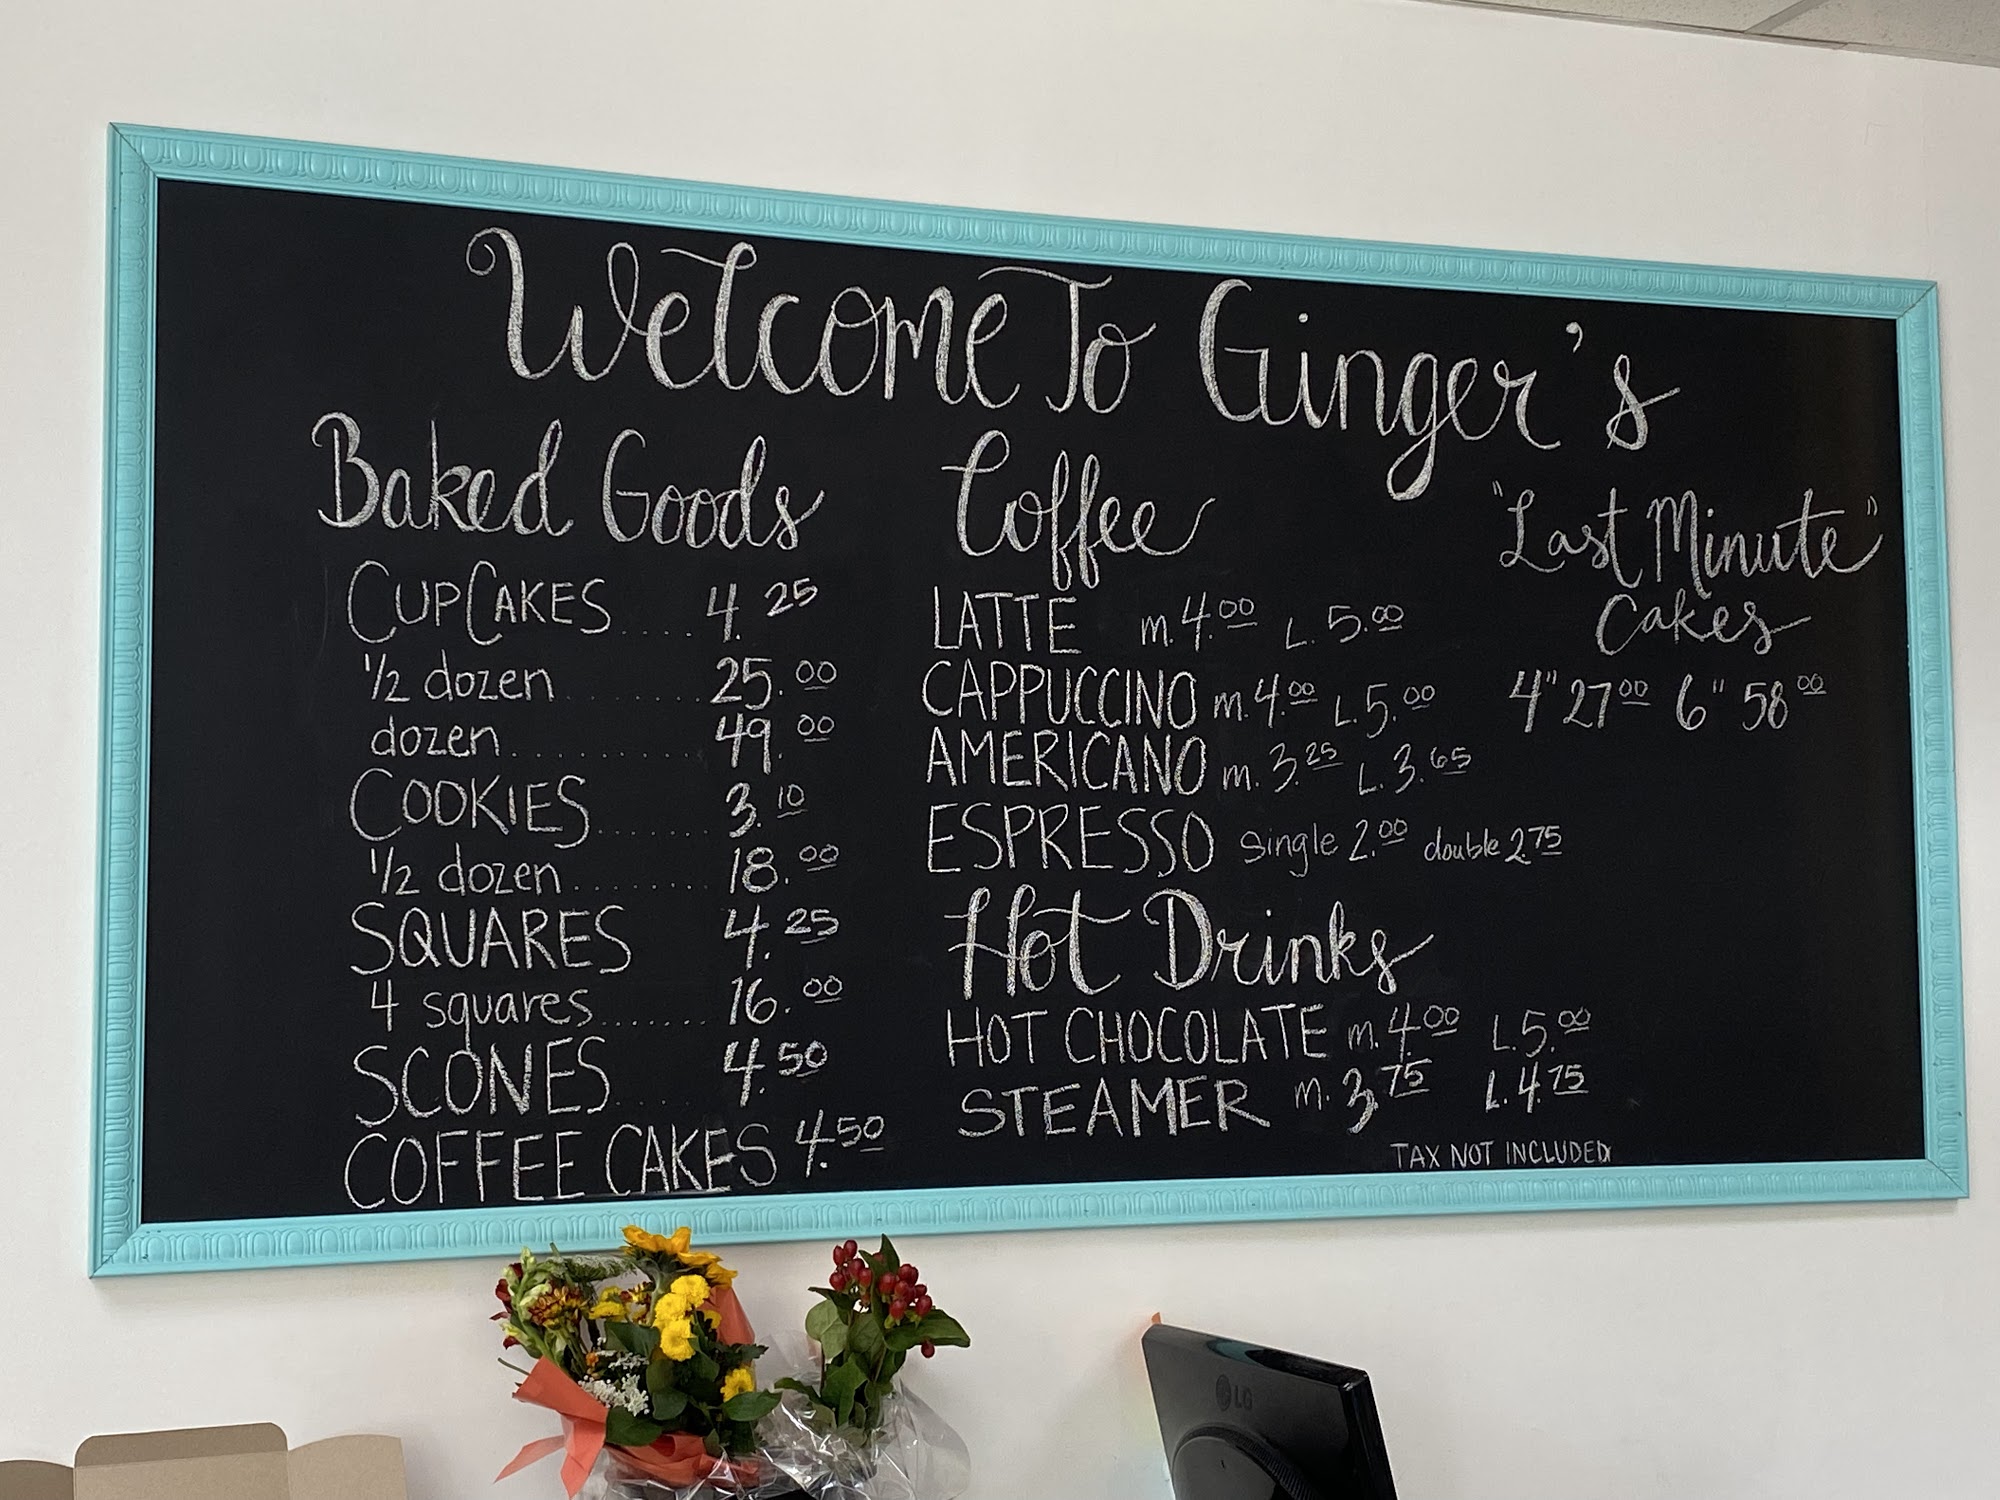 Welcome To Ginger's
Baked Goods
CUPCAKES .... 4.25
1/2 dozen ....... 25.00
dozen .......... 49.00
COOKIES ....... 3.10
1/2 dozen ........ 18.00
SQUARES 4.25
4 squares ....... 16.00
SCONES .... 4.50
COFFEE CAKES 4.50
Coffee
LATTE m. 4.00 L. 5.00
CAPPUCCINO m. 4.00 L. 5.00
AMERICANO m. 3.25 L. 3.65
ESPRESSO single 2.00 double 2.75
Hot Drinks
HOT CHOCOLATE m. 4.00 L. 5.00
STEAMER m. 3.75 L. 4.75
TAX NOT INCLUDED
"Last Minute"
Cakes
4" 27 00 6" 58 00
LG